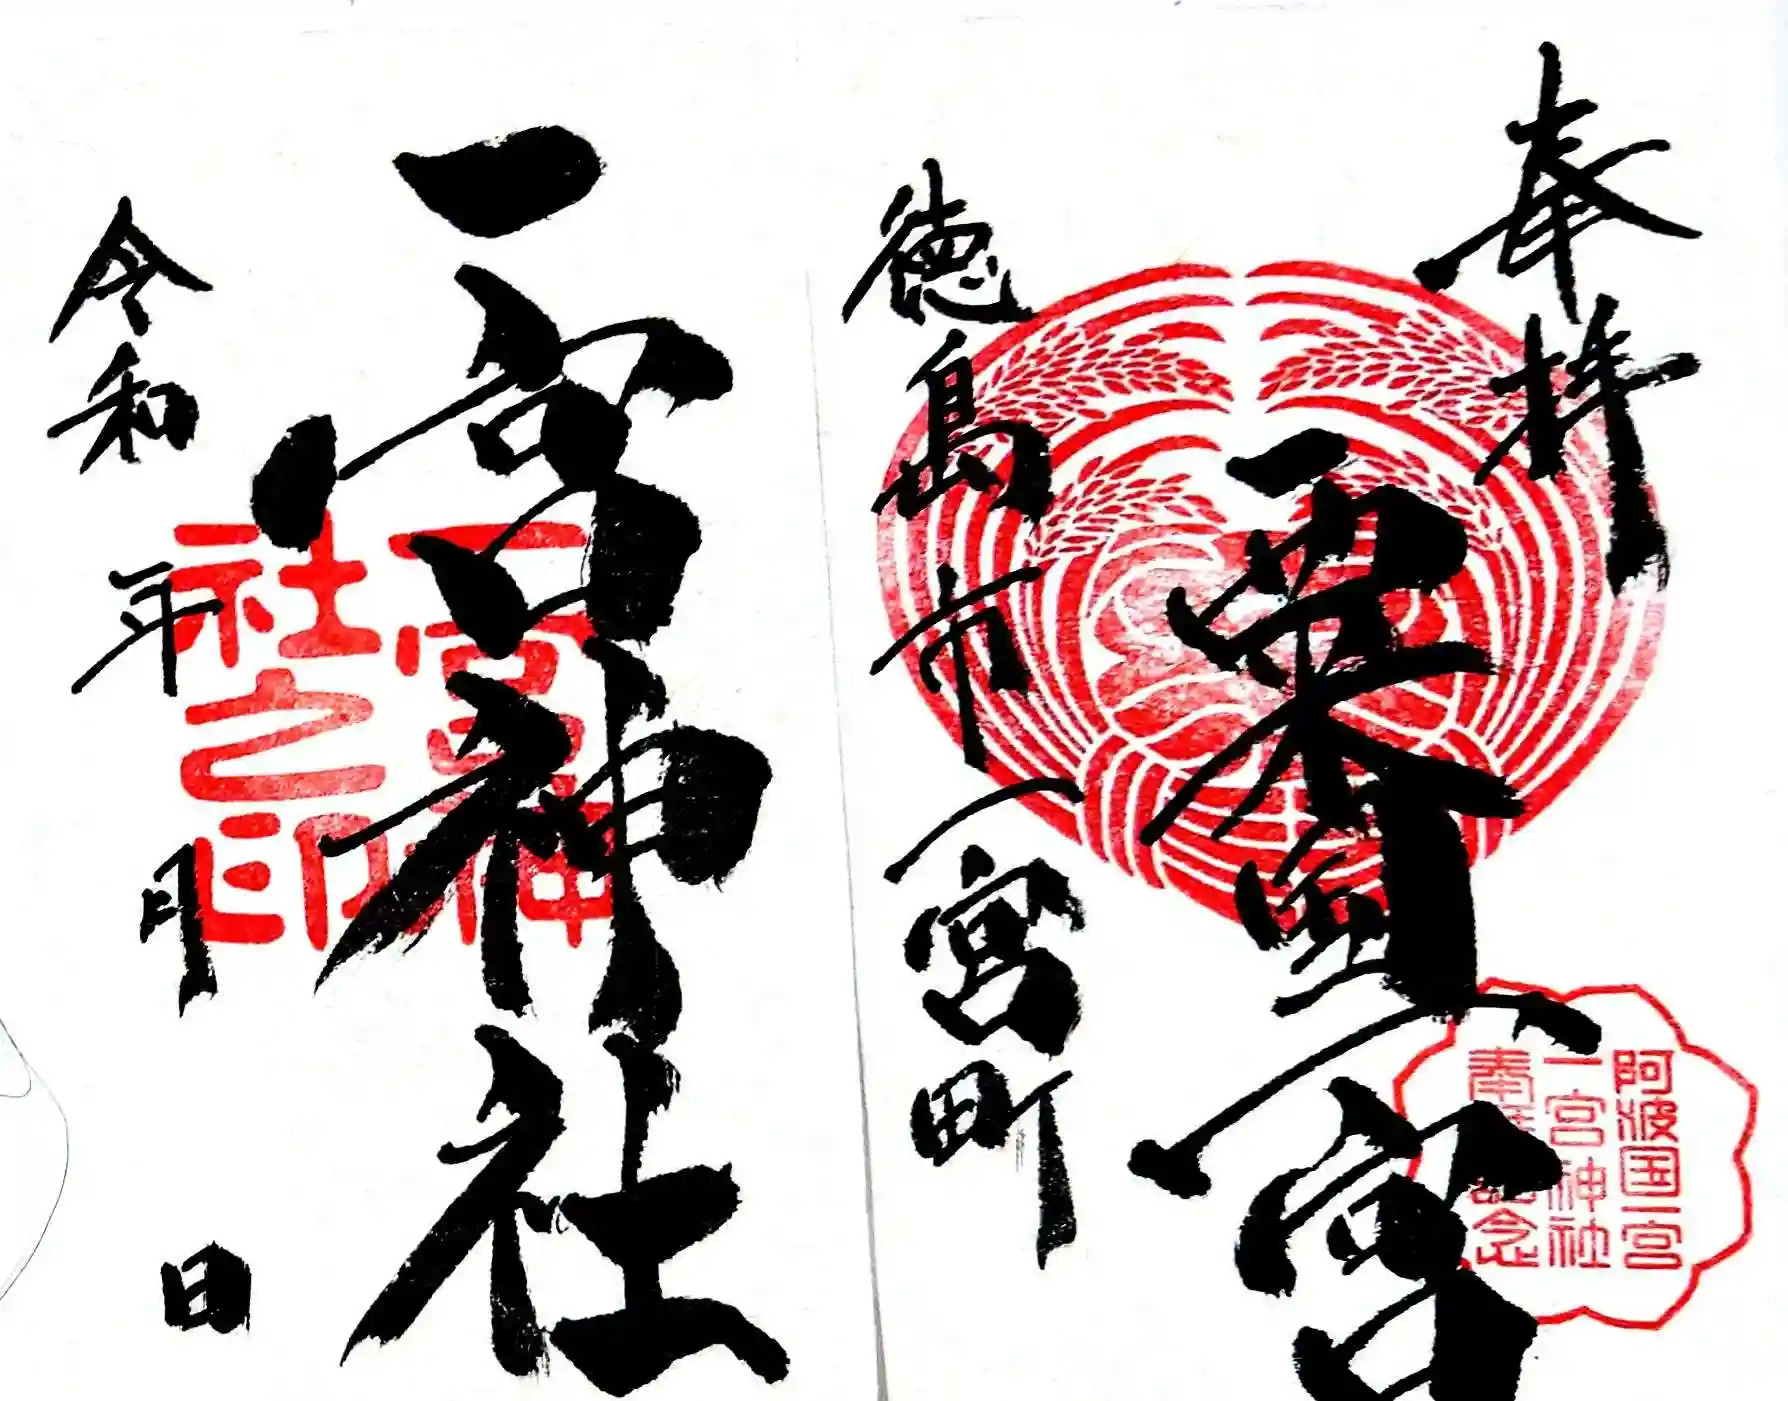 奉拝
粟国一宮
阿波国一宮
一宮神社
奉拝記念
徳島市一宮町
一宮神社
一宮神
社之印
令和 年 月 日